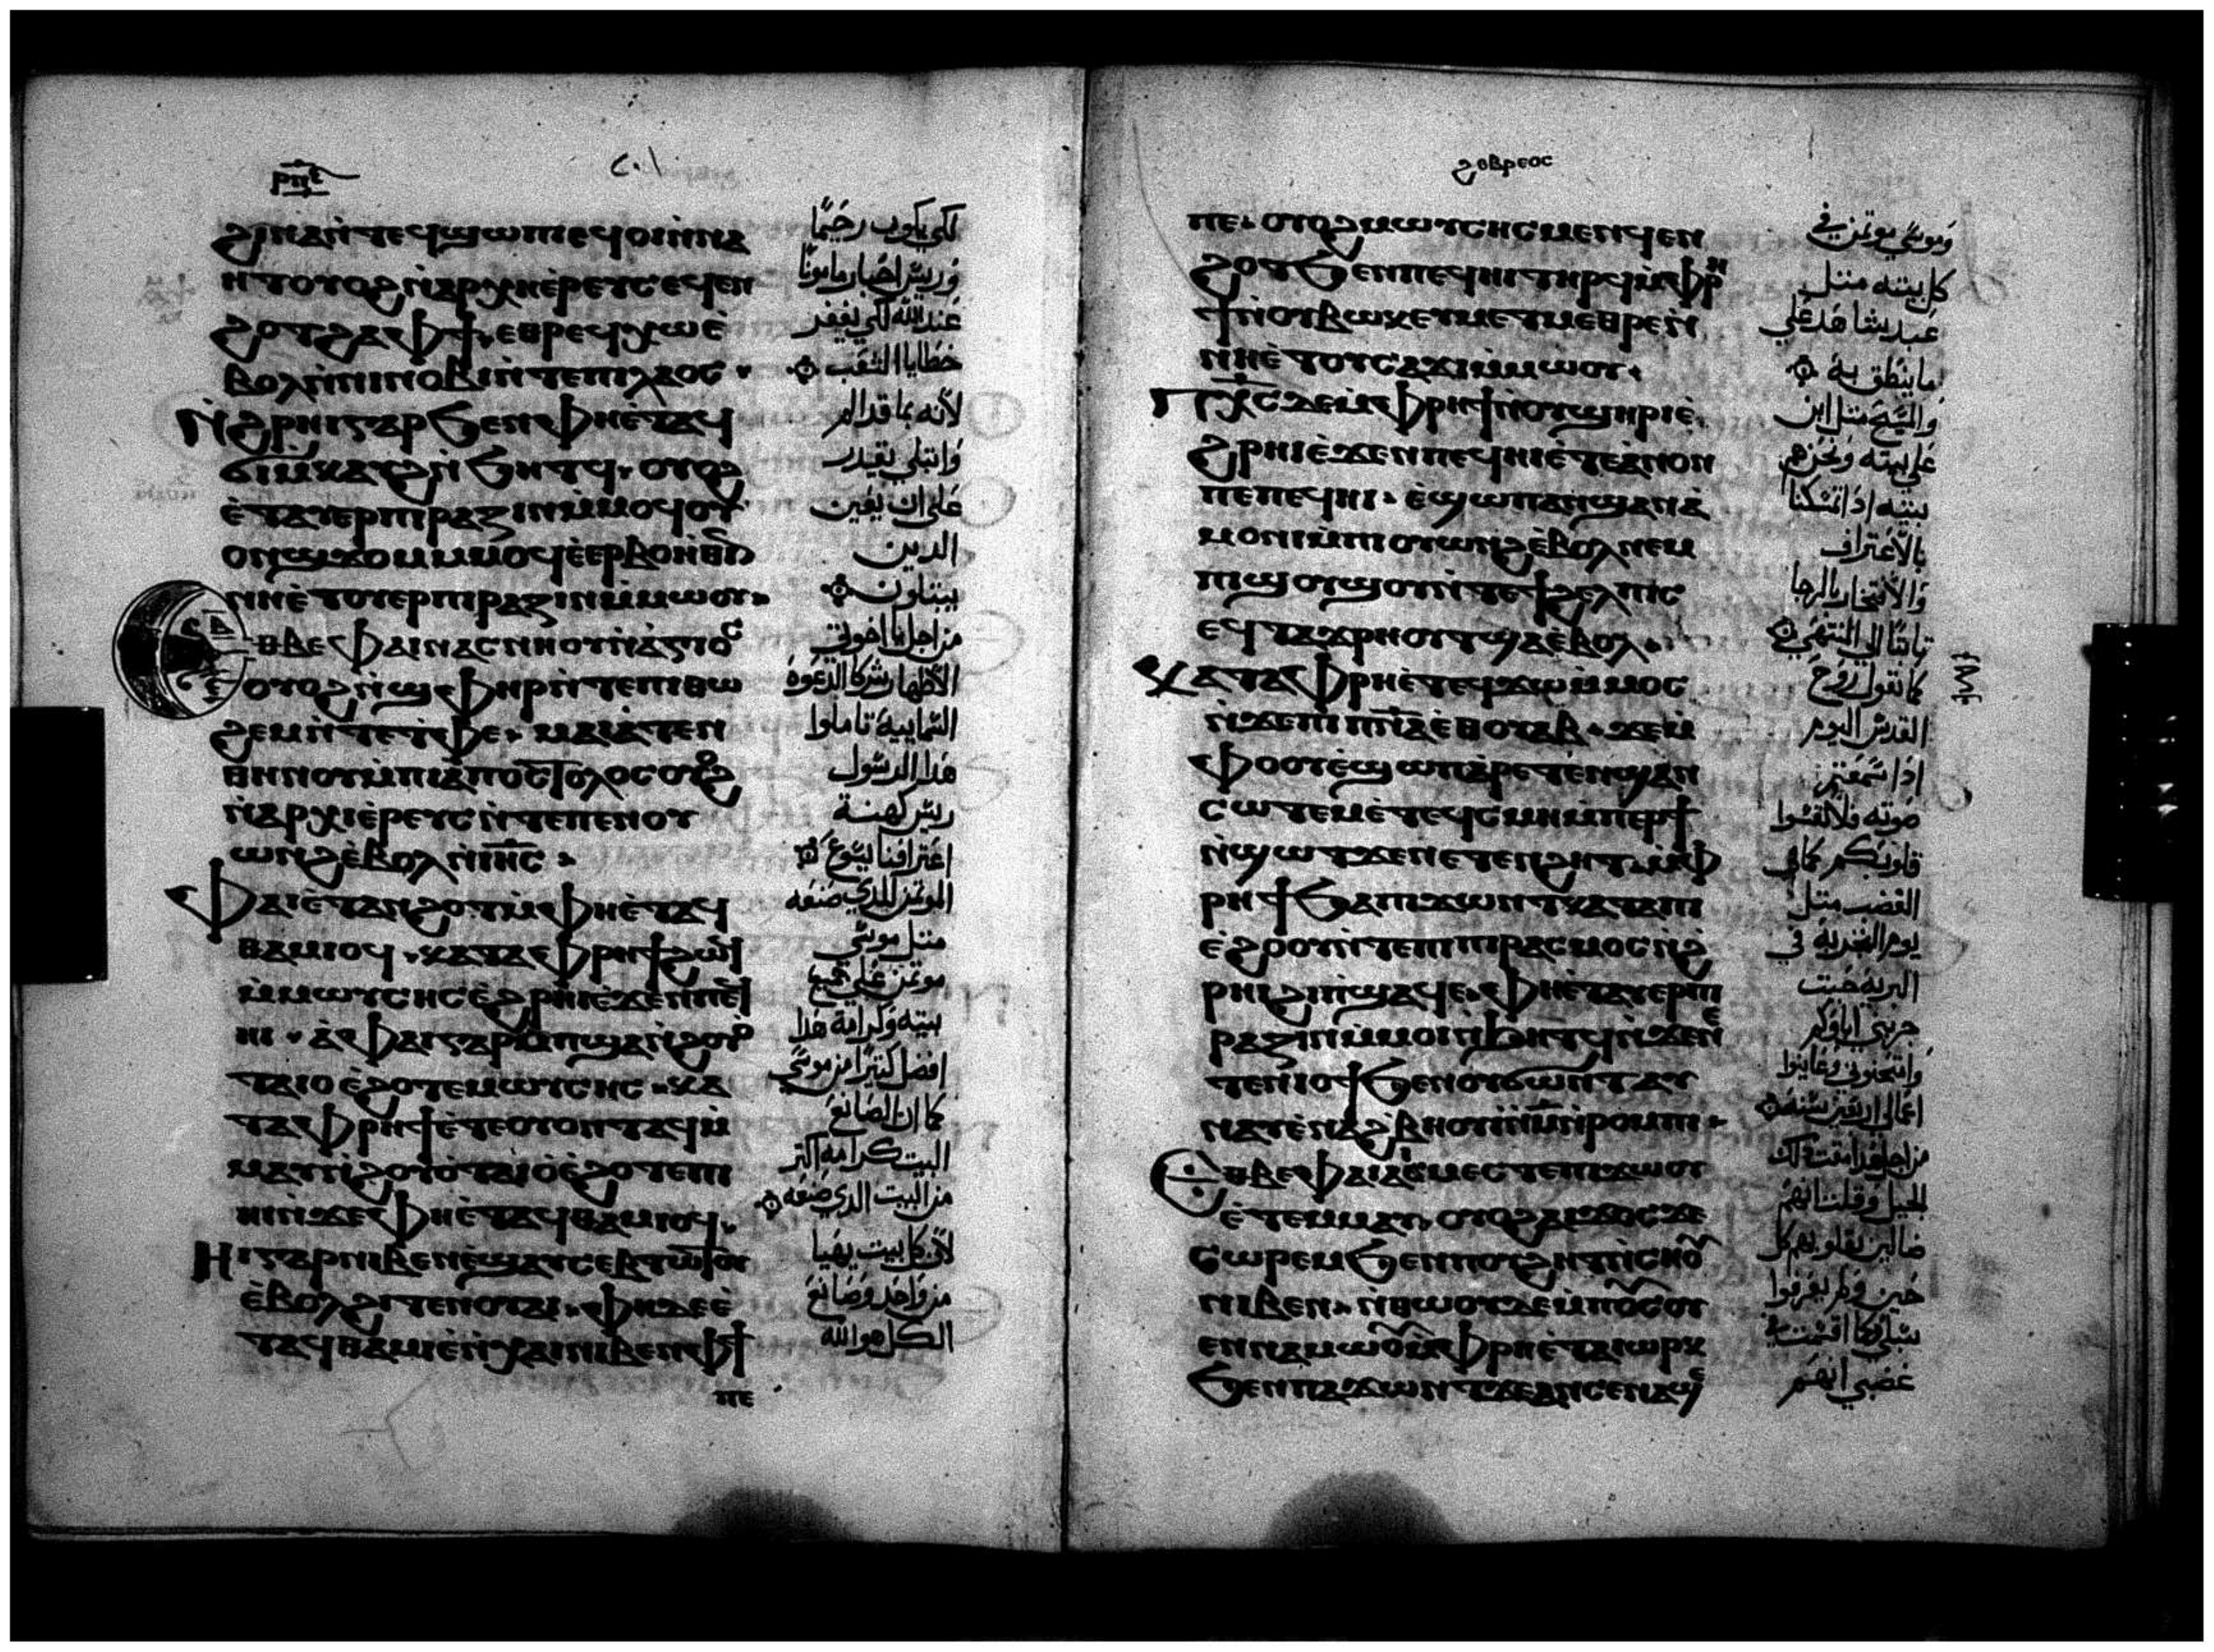 ⲣⲡⲋ
٢٠١
ϩⲓⲛⲁⲛ̀ⲧⲉϥϣⲱⲡⲓⲉϥⲟⲓⲛ̀ⲛⲁ
ⲏⲧⲟⲩⲟϩⲛ̀ⲁⲣⲭⲏⲉ̀ⲣⲉⲩⲥⲉϥⲉⲛ
ϩⲟⲩⲧϩⲁⲫϯⲉⲑⲣⲉϥⲭⲱⲉ̀
ⲃⲟⲗⲛ̀ⲛⲓⲛⲟⲃⲓⲛ̀ⲧⲉⲡⲓⲗⲁⲟⲥ
ⲛ̀ϩⲣⲏⲓⲅⲁⲣϧⲉⲛⲫⲏⲉ̀ⲧⲁϥ
ϭⲓⲙ̀ⲕⲁⲩϩⲛ̀ϧⲏⲧϥ ⲟⲩⲟϩ
ⲉ̀ⲧⲁⲩⲉⲣⲡⲓⲣⲁⲍⲓⲛⲙ̀ⲙⲟϥⲟⲩ
ⲟⲛϣϫⲟⲙⲙ̀ⲙⲟϥⲉ̀ⲉⲣⲃⲟⲏ̀ⲑⲓⲛ
ⲛⲏⲉ̀ⲧⲟⲩⲉⲣⲡⲓⲣⲁⲍⲓⲛⲙ̀ⲙⲱⲟⲩ
ⲉⲑⲃⲉⲫⲁⲓⲛⲁⲥⲛⲏⲟⲩⲛ̀ⲁ̀ⲅⲓⲟⲥ
ⲟⲩⲟϩⲛ̀ϣⲫⲏⲣⲛ̀ⲧⲉⲡⲓⲑⲱ
ϩⲉⲙⲛ̀ⲧⲉⲧ̀ⲫⲉ ⲙⲁⲓⲁ̀ⲧⲉⲛ
ⲑⲏⲛⲟⲩⲙ̀ⲡⲓⲁ̀ⲡⲟⲥⲧⲟⲗⲟⲥⲟⲩⲟϩ
ⲛ̀ⲁⲣⲭⲓⲉ̀ⲣⲉⲩⲥⲛ̀ⲧⲉⲡⲉⲛⲟⲩ
ⲱⲛϩⲉ̀ⲃⲟⲗⲛ̀ⲓⲏⲥ
ⲫⲁⲓⲉ̀ⲧⲁⲛϩⲟⲩⲧⲙ̀ⲫⲏⲉ̀ⲧⲁϥ
ⲑⲁⲙⲓⲟϥ ⲕⲁⲧⲁⲫⲣⲏϯϩⲱϥ
ⲙ̀ⲙⲱⲩⲥⲏⲥⲉ̀ϩⲣⲏⲓⲉ̀ϫⲉⲛⲡⲉϥ
ⲏⲓ ⲁ̀ⲫⲁⲓⲅⲁⲣⲙ̀ⲡϣⲁⲛ̀ϩⲟⲩⲟ̀
ⲧⲁⲓⲟⲉ̀ϩⲟⲧⲉⲙⲱⲩⲥⲏⲥ ⲕⲁ
ⲧⲁⲫⲣⲏϯⲉ̀ⲧⲉⲟⲩⲟⲛⲧⲁϥⲙ̀
ⲙⲁⲩⲛ̀ϩⲟⲩⲟ̀ⲧⲁⲓⲟ̀ⲉ̀ϩⲟⲧⲉⲡⲓ
ⲏⲓⲛ̀ϫⲉⲫⲏⲉ̀ⲧⲁϥⲑⲁⲙⲓⲟϥ
ⲏⲓⲅⲁⲣⲛⲓⲃⲉⲛⲉ̀ϣⲁⲩⲥⲉⲃⲧⲱⲧⲟⲩ
ⲉ̀ⲃⲟⲗϩⲓⲧⲉⲛⲟⲩⲁⲓ ⲫⲏⲇⲉⲉ̀
ⲧⲁϥⲑⲁⲙⲓⲉ̀ⲛ̀ⲭⲁⲓⲛⲓⲃⲉⲛⲫϯ
ⲡⲉ
لكي يكون رحيما
وريس احبار مامونا
عند الله لكي يغفر
خطايا الشعب
لانه بما قد الم
وابتلي يقدر
على ان يعين
الدين
يبتلون
من اجل يا اخوتي
الاطهار شركا الدعوة
السماييه تاملوا
هدا الرسول
ريس كهنة
اعترافنا يسوع
الموتمن للدي صنعه
متل موسي
موتمن علي جميع
بيته وكرامة هدا
افضل كتيرا من موسي
كما ان لصانع
البيت كرامه اكتر
من البيت الدي صنعه
لان كل بيت يهيا
من واحد وصانع
الكل هو الله
ϩⲉⲃⲣⲉⲟⲥ
ⲡⲉ ⲟⲩⲟϩⲙⲱⲩⲥⲏⲥⲙⲉⲛϥⲉⲛ
ϩⲟⲩⲧϧⲉⲛⲡⲉϥⲏⲓⲧⲏⲣϥⲙ̀ⲫⲣⲏ
ϯⲛ̀ⲟⲩⲃⲱⲕⲉⲩⲙⲉⲧⲙⲉⲑⲣⲉⲛ̀
ⲛⲏⲉ̀ⲧⲟⲩⲥⲁϫⲓⲙ̀ⲙⲱⲟⲩ
ⲡⲭⲥⲇⲉⲙ̀ⲫⲣⲏϯⲛ̀ⲟⲩϣⲏⲣⲓⲉ̀
ϩⲣⲏⲓⲉ̀ϫⲉⲛⲡⲉϥⲏⲓⲉ̀ⲧⲉⲁ̀ⲛⲟⲛ
ⲡⲉⲡⲉϥⲏⲓ ⲉ̀ϣⲱⲡⲁⲛϣⲁⲛⲁ̀
ⲙⲟⲛⲓⲙ̀ⲡⲓⲟⲩⲱⲛϩⲉ̀ⲃⲟⲗⲛⲉⲙ
ⲡϣⲟⲩϣⲟⲩⲛ̀ⲧⲉϯϩⲉⲗⲡⲓⲥ
ⲉⲥⲧⲁϫⲣⲏⲟⲩⲧϣⲁⲉ̀ⲃⲟⲗ
ⲕⲁⲧⲁⲫⲣⲏⲉ̀ⲧⲉϥϫⲱⲙ̀ⲙⲟⲥ
ⲛ̀ϫⲉⲡⲓⲡⲛⲁⲉ̀ⲑⲟⲩⲁⲃ ϫⲉⲙ̀
ⲫⲟⲟⲩⲉ̀ϣⲱⲡⲁⲣⲉⲧⲉⲛϣⲁⲛ
ⲥⲱⲧⲉⲙⲉ̀ⲧⲉϥⲥⲙⲏⲙ̀ⲡⲉⲣϯ
ⲛ̀ϣⲱⲧϫⲉⲛⲉⲧⲉⲛϩⲏⲧⲙ̀ⲫ
ⲣⲏϯϧⲁⲡⲓϫⲱⲛⲧⲕⲁⲧⲁⲡⲓ
ⲉ̀ϩⲟⲟⲩⲛ̀ⲧⲉⲡⲓⲡⲓⲣⲁⲥⲙⲟⲥⲛ̀ϩ
ⲣⲏⲓϩⲓⲡϣⲁϥⲉ ⲫⲏⲉ̀ⲧⲁⲩⲉⲣⲡⲓ
ⲣⲁⲍⲓⲛⲙ̀ⲙⲟⲓⲛ̀ϧⲏⲧϥⲛ̀ϫⲉⲛⲉ
ⲧⲉⲛⲓⲟϯϧⲉⲛⲟⲩϭⲱⲛⲧⲁⲩ
ⲛⲁⲩⲉ̀ⲛⲁϩⲃⲏⲟⲩⲓⲛ̀ⲙⲛ̀ⲣⲟⲙⲡⲓ
ⲉⲑⲃⲉⲫⲁⲓⲁⲓⲙⲉⲥⲧⲉⲡⲓϫⲱⲟⲩ
ⲉ̀ⲧⲉⲙⲙⲁⲩ ⲟⲩⲟϩⲁⲓϫⲟⲥϫⲉ
ⲥⲱⲣⲉⲙϧⲉⲛⲡⲟⲩϩⲏⲧⲛ̀ⲥⲏⲟⲩ
ⲛⲓⲃⲉⲛ ⲛ̀ⲑⲱⲟⲩⲇⲉⲙ̀ⲡⲟⲩⲥⲟⲩ
ⲉⲛⲛⲁⲙⲱⲓⲧⲙ̀ⲫⲣⲏⲉ̀ⲧⲁⲓⲱⲣⲕ
ϧⲉⲛⲡⲁϫⲱⲛⲧϫⲉⲁⲛⲥⲉⲛⲁϣⲉ
وموسي موتمن في
كل بيته متل
عبد يشاهد علي
ما ينطق به
والمسيح متل ابن
علي بيته ونحن هم
بيته ادا تمسكنا
بالاعتراف
والافتخار بالرجا
تابتا الي المنتهي
كما يقول روح
القدس اليوم
ادا سمعتم
صوته فلا تقسوا
قلوبكم كما في
الغضب متل
يوم التجربه في
البريه حيت
جربني اباوكم
وامتحنوني وعاينوا
اعمالي اربعين سنه
من اجل هدا مقت دلك
الجيل وقلت انهم
ضالين بقلوبهم كل
حين ولم يعرفوا
سبلي كما اقسمت في
غضبي انهم